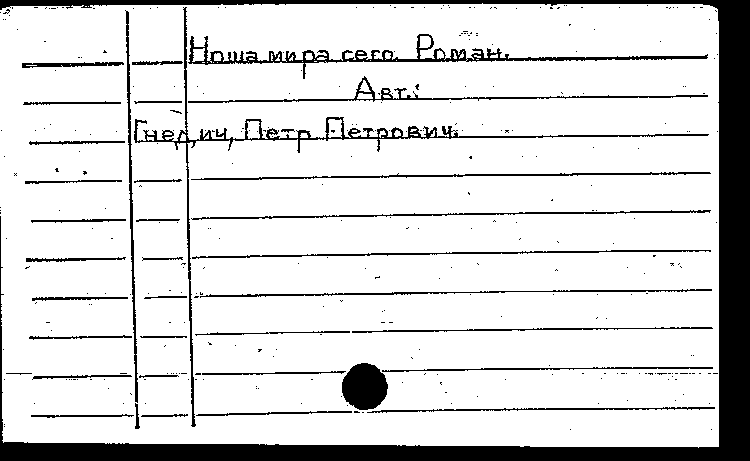 Ноша мира сего. Роман.
Авт.:
Гнедич, Петр Петрович.